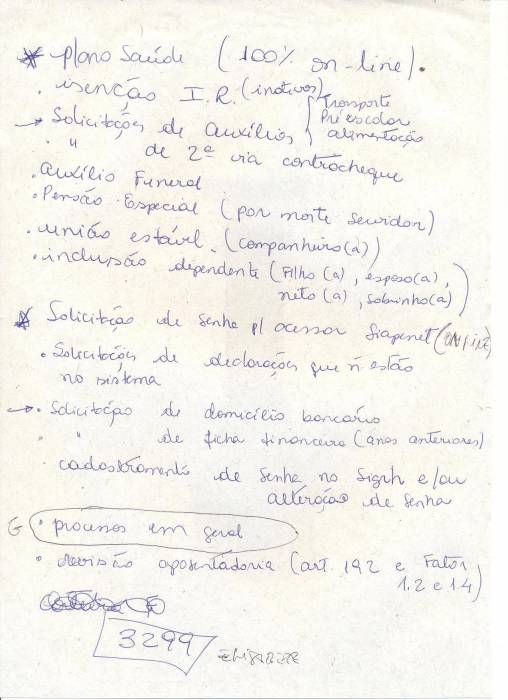 * Plano Saúde (100% on-line).
. isenção I.R. (inativos)
→ Solicitações de auxílios { Transporte
Pré escolar
alimentação
. " de 2ª via contracheque
. Auxílio Funeral
. Pensão Especial (por morte servidor)
. união estável. (companheiro(a))
. inclusão dependente (Filho(a), esposo(a),
neto(a), sobrinho(a))
* Solicitação de senha p/ acessar Siapenet (ON LINE)
. Solicitações de declarações que ñ estão
no sistema
→ . Solicitação de domicílio bancário
. " de ficha financeira (anos anteriores)
cadastramento de senha no Sigrh e/ou
alteração de senha
G . processos em geral
. revisão aposentadoria (art. 192 e Fator
1.2 e 1.4)
3299